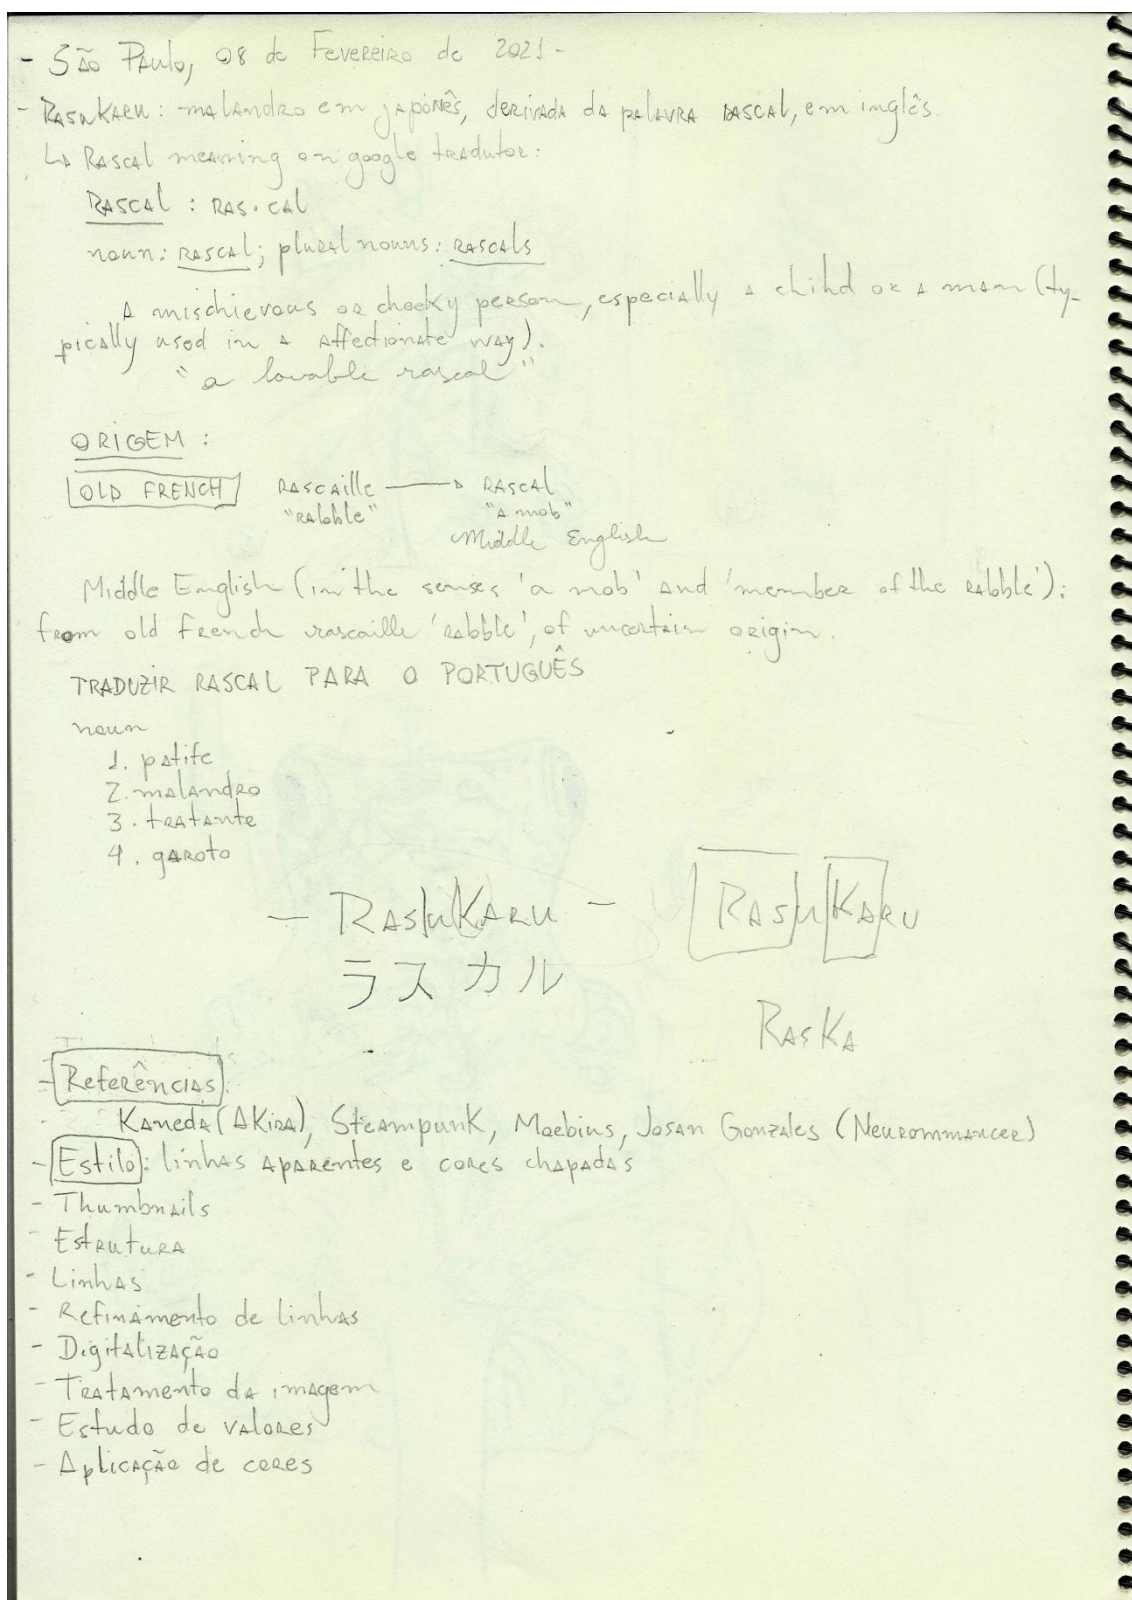 - São Paulo, 08 de Fevereiro de 2021 -
- Rasukaru: malandro em japonês, derivada da palavra rascal, em inglês.
↳ Rascal meaning on google tradutor:
RASCAL : RAS·CAL
noun: RASCAL; plural nouns: RASCALS
A mischievous or cheeky person, especially a child or a man (ty-
pically used in a affectionate way).
"a lovable rascal"
ORIGEM :
OLD FRENCH RASCAILLE → RASCAL
"rabble" "a mob"
Middle English
Middle English (in the senses 'a mob' and 'member of the rabble'):
from old french rascaille 'rabble', of uncertain origin.
TRADUZIR RASCAL PARA O PORTUGUÊS
noun
1. patife
2. malandro
3. tratante
4. garoto
- RasuKaru - RasuKaru
ラスカル
RasKa
- Referências:
Kaneda (Akira), Steampunk, Moebius, Josan Gonzales (Neurommancer)
- Estilo: linhas aparentes e cores chapadas
- Thumbnails
- Estrutura
- Linhas
- Refinamento de linhas
- Digitalização
- Tratamento da imagem
- Estudo de valores
- Aplicação de cores